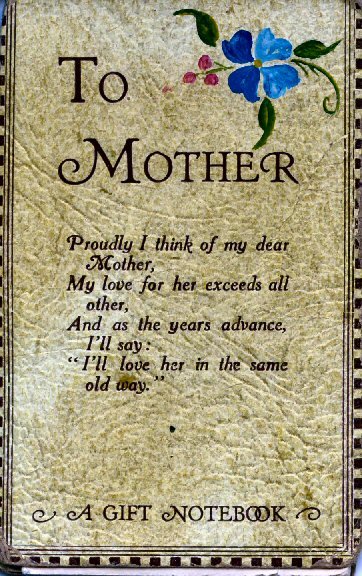 To
Mother
Proudly I think of my dear
Mother,
My love for her exceeds all
other,
And as the years advance,
I'll say:
"I'll love her in the same
old way."
A GIFT NOTEBOOK